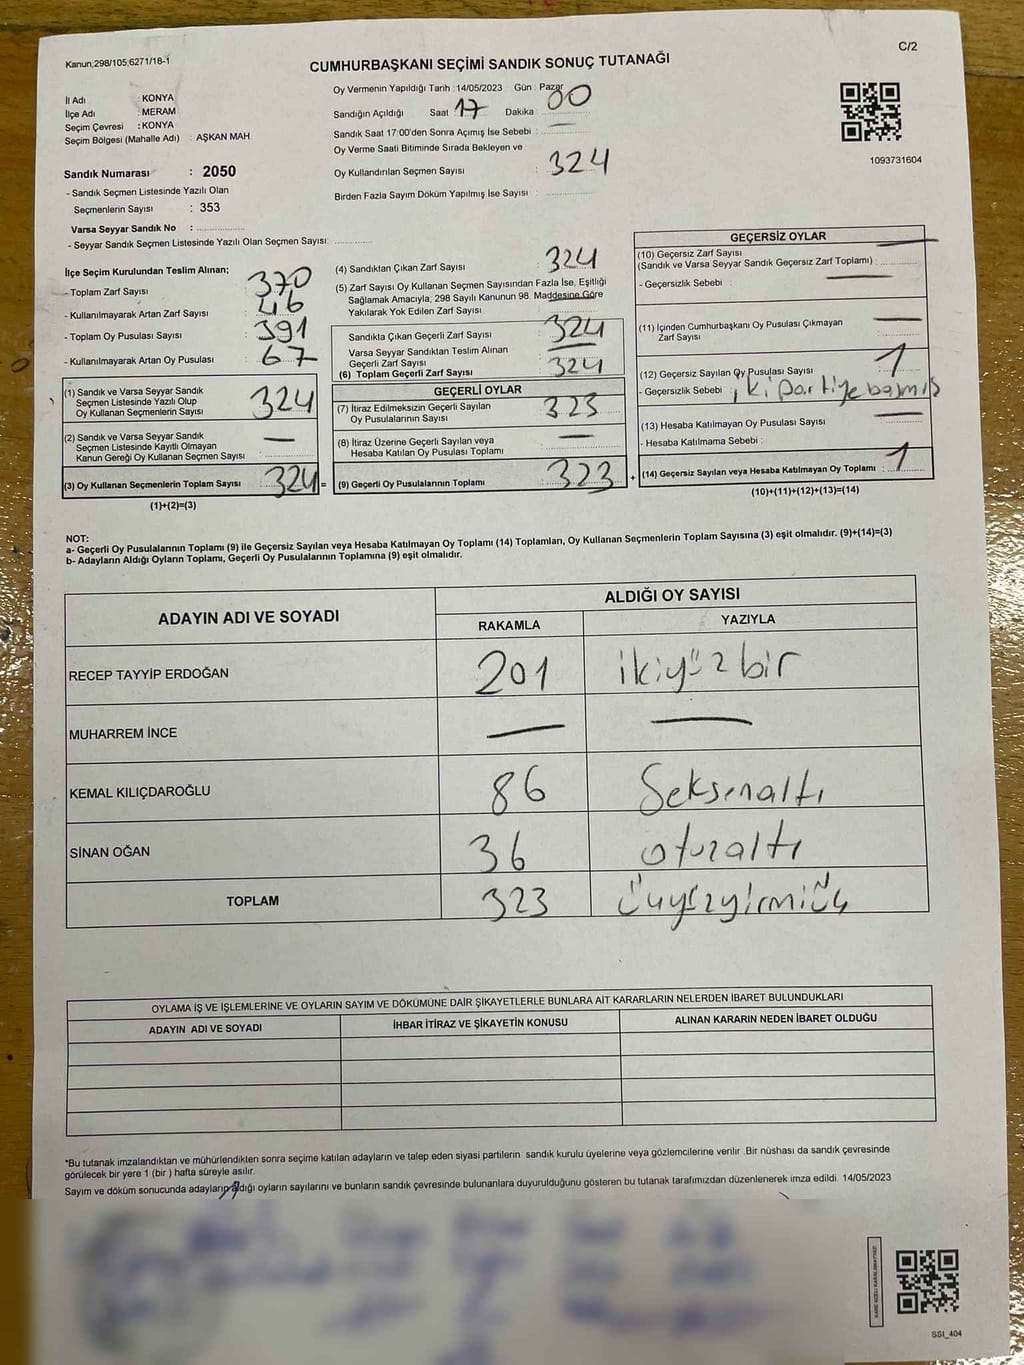 Kanun;298/105;6271/18-1
C/2
CUMHURBAŞKANI SEÇİMİ SANDIK SONUÇ TUTANAĞI
İl Adı : KONYA
İlçe Adı : MERAM
Seçim Çevresi : KONYA
Seçim Bölgesi (Mahalle Adı) : AŞKAN MAH
Sandık Numarası : 2050
- Sandık Seçmen Listesinde Yazılı Olan
Seçmenlerin Sayısı : 353
Varsa Seyyar Sandık No :
- Seyyar Sandık Seçmen Listesinde Yazılı Olan Seçmen Sayısı:
Oy Vermenin Yapıldığı Tarih : 14/05/2023 Gün : Pazar
Sandığın Açıldığı Saat 17 Dakika 00
Sandık Saat 17:00'den Sonra Açımış İse Sebebi : —
Oy Verme Saati Bitiminde Sırada Bekleyen ve
Oy Kullandırılan Seçmen Sayısı : 324
Birden Fazla Sayım Döküm Yapılmış İse Sayısı :
1093731604
İlçe Seçim Kurulundan Teslim Alınan;
- Toplam Zarf Sayısı : 370
- Kullanılmayarak Artan Zarf Sayısı : 46
- Toplam Oy Pusulası Sayısı : 391
- Kullanılmayarak Artan Oy Pusulası : 67
(1) Sandık ve Varsa Seyyar Sandık
Seçmen Listesinde Yazılı Olup
Oy Kullanan Seçmenlerin Sayısı : 324
(2) Sandık ve Varsa Seyyar Sandık
Seçmen Listesinde Kayıtlı Olmayan
Kanun Gereği Oy Kullanan Seçmen Sayısı : —
(3) Oy Kullanan Seçmenlerin Toplam Sayısı : 324 =
(1)+(2)=(3)
(4) Sandıktan Çıkan Zarf Sayısı : 324
(5) Zarf Sayısı Oy Kullanan Seçmen Sayısından Fazla İse, Eşitliği
Sağlamak Amacıyla, 298 Sayılı Kanunun 98. Maddesine Göre
Yakılarak Yok Edilen Zarf Sayısı : —
Sandıkta Çıkan Geçerli Zarf Sayısı : 324
Varsa Seyyar Sandıktan Teslim Alınan
Geçerli Zarf Sayısı : —
(6) Toplam Geçerli Zarf Sayısı : 324
GEÇERLİ OYLAR
(7) İtiraz Edilmeksizin Geçerli Sayılan
Oy Pusulalarının Sayısı : 323
(8) İtiraz Üzerine Geçerli Sayılan veya
Hesaba Katılan Oy Pusulası Toplamı : —
(9) Geçerli Oy Pusulalarının Toplamı : 323 +
GEÇERSİZ OYLAR
(10) Geçersiz Zarf Sayısı —
(Sandık ve Varsa Seyyar Sandık Geçersiz Zarf Toplamı) :
- Geçersizlik Sebebi : —
(11) İçinden Cumhurbaşkanı Oy Pusulası Çıkmayan
Zarf Sayısı : —
(12) Geçersiz Sayılan Oy Pusulası Sayısı : 1
- Geçersizlik Sebebi : iki partiye basmış
(13) Hesaba Katılmayan Oy Pusulası Sayısı : —
- Hesaba Katılmama Sebebi :
(14) Geçersiz Sayılan veya Hesaba Katılmayan Oy Toplamı : 1
(10)+(11)+(12)+(13)=(14)
NOT:
a- Geçerli Oy Pusulalarının Toplamı (9) ile Geçersiz Sayılan veya Hesaba Katılmayan Oy Toplamı (14) Toplamları, Oy Kullanan Seçmenlerin Toplam Sayısına (3) eşit olmalıdır. (9)+(14)=(3)
b- Adayların Aldığı Oyların Toplamı, Geçerli Oy Pusulalarının Toplamına (9) eşit olmalıdır.
ADAYIN ADI VE SOYADI
ALDIĞI OY SAYISI
RAKAMLA YAZIYLA
RECEP TAYYİP ERDOĞAN 201 ikiyüzbir
MUHARREM İNCE — —
KEMAL KILIÇDAROĞLU 86 Seksenaltı
SİNAN OĞAN 36 otuzaltı
TOPLAM 323 üçyüzyirmiüç
OYLAMA İŞ VE İŞLEMLERİNE VE OYLARIN SAYIM VE DÖKÜMÜNE DAİR ŞİKAYETLERLE BUNLARA AİT KARARLARIN NELERDEN İBARET BULUNDUKLARI
ADAYIN ADI VE SOYADI İHBAR İTİRAZ VE ŞİKAYETİN KONUSU ALINAN KARARIN NEDEN İBARET OLDUĞU
*Bu tutanak imzalandıktan ve mühürlendikten sonra seçime katılan adayların ve talep eden siyasi partilerin sandık kurulu üyelerine veya gözlemcilerine verilir .Bir nüshası da sandık çevresinde
görülecek bir yere 1 (bir ) hafta süreyle asılır.
Sayım ve döküm sonucunda adayların aldığı oyların sayılarını ve bunların sandık çevresinde bulunanlara duyurulduğunu gösteren bu tutanak tarafımızdan düzenlenerek imza edildi. 14/05/2023
SSI_404